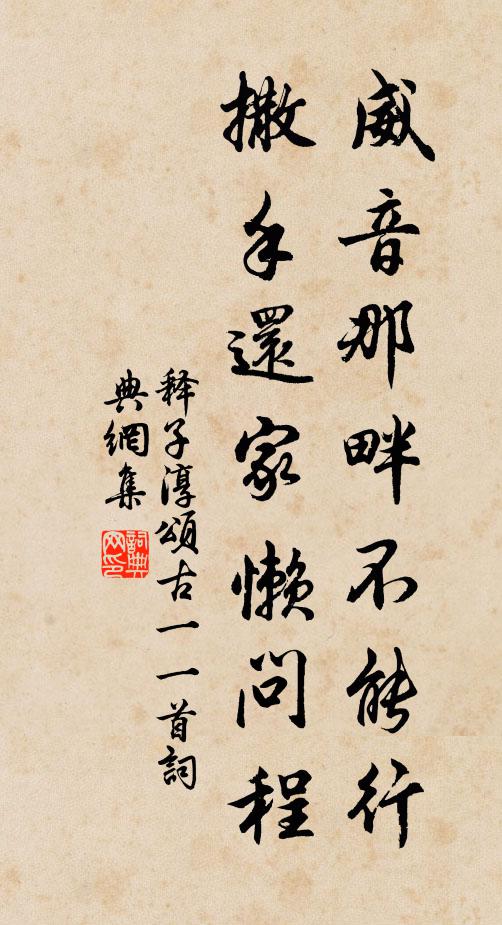 威音那畔不能行
撒手還家懶問程
释子淳頌古一一首詞
典網集
詞典
网印